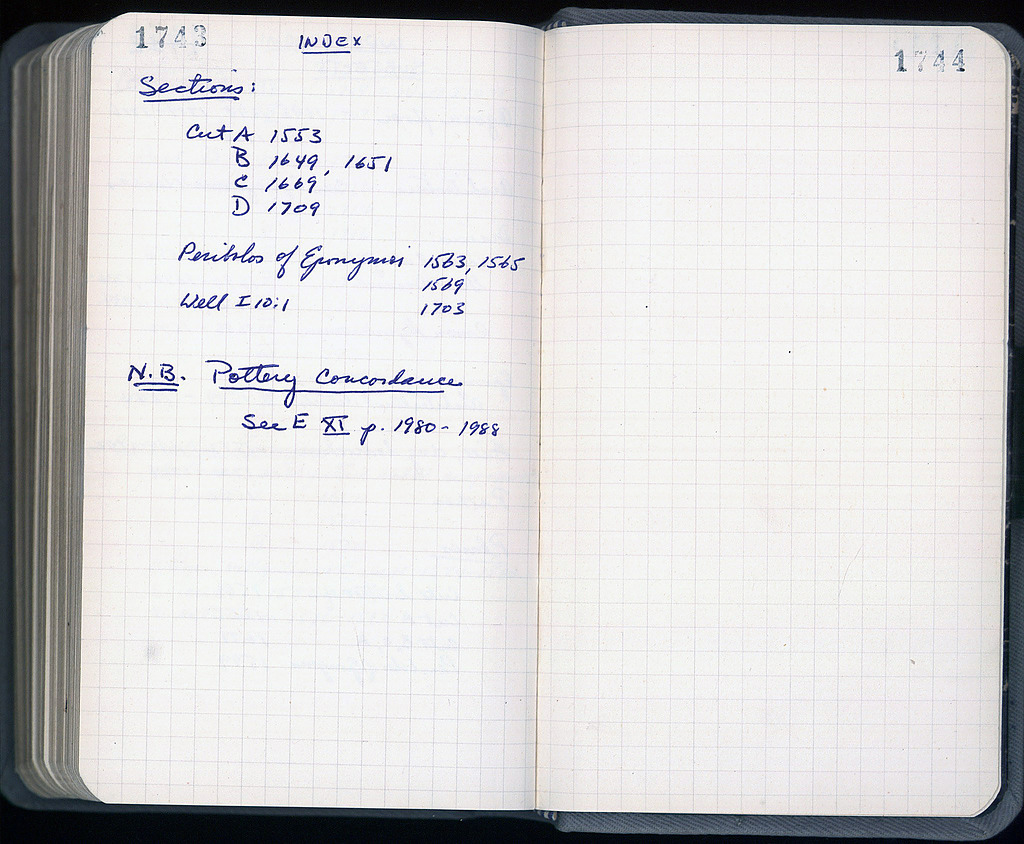 1743 INDEX
Sections:
Cut A 1553
B 1649, 1651
C 1669
D 1709
Peribolos of Eponymoi 1563, 1565
1569
Well I 10:1 1703
N.B. Pottery Concordance
See E XI p. 1980 - 1988
1744